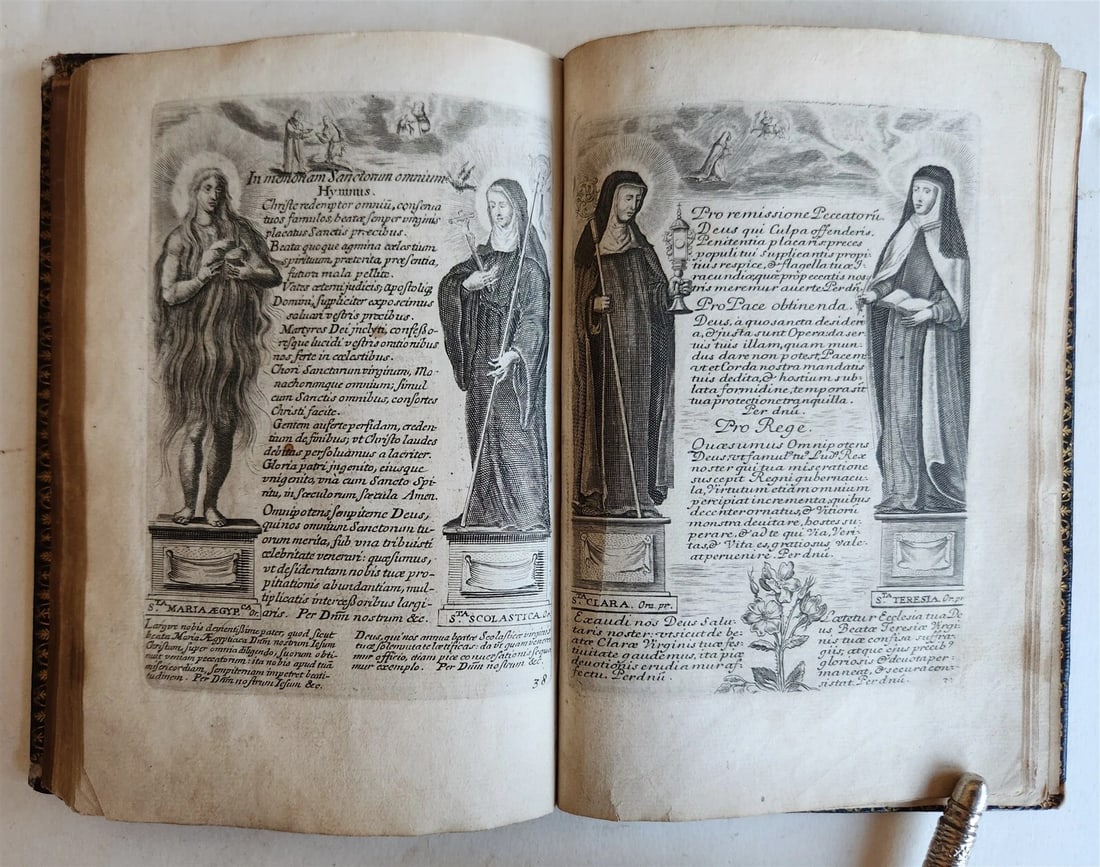 In memoriam Sanctorum omnium
Hymnus.
Christe redemptor omniũ, conserva
tuos famulos, beatæ semper virginis
placatus Sanctis præcibus.
Beata quoque agmina cœlestium
spirituum, præterita, præsentia,
futura mala pellite.
Vates æterni judicis, apostoliq
Domini, suppliciter exposcimus
saluari vestris precibus.
Martyres Dei jnclyti, confesso-
resque lucidi vestris orationibus
nos ferte in cœlestibus.
Chori Sanctarum virginum, Mo-
nachorumque omnium; simul
cum Sanctis omnibus, consortes
Christi facite.
Gentem auferte perfidam, creden-
tium de finibus; vt Christo laudes
debitas persoluamus alacriter.
Gloria patri jngenito, eiusque
vnigenito, vna cum Sancto Spi-
ritu, in sæculorum sæcula Amen.
Omnipotens sempiterne Deus,
qui nos omnium Sanctorum tu-
orum merita, sub vna tribuisti
celebritate venerari: quæsumus,
vt desideratam nobis tuæ pro-
pitiationis abundantiam, mul-
tiplicatis intercessoribus largi-
aris. Per Dñm nostrum &c.
S.TA MARIA ÆGYP.CA Or.
Largire nobis clementissime pater, quod sicut
beata Maria Ægyptiaca Dñm nostrum Iesum
Christum, super omnia diligendo, suorum obti-
nuit veniam peccatorum: ita nobis apud tuã
misericordiam, sempiternam impetret beati-
tudinem. Per Dñm nostrum Iesum &c.
S.TA SCOLASTICA. Or.
Deus, qui nos annua beatæ Scolasticæ virginis
tuæ solemnitate lætificas: da vt quam venera-
mur officio, etiam piæ conversationis sequa
mur exemplo. Per Dñm nostrum &c.
38
Pro remissione Peccatorũ.
Deus qui Culpa offenderis,
Penitentia placaris preces
populi tui supplicantis propi
tius respice, & flagella tuæ I
racundiæ quæ pro peccatis nos
tris meremur auerte Per dñ.
Pro Pace obtinenda.
Deus, à quo sancta desider
a, & justa sunt Opera: da ser
uis tuis illam, quam mun-
dus dare non potest, Pacem
vt et Corda nostra mandatis
tuis dedita, & hostium sub-
lata formidine, tempora sit
tua protectione tranquilla.
Per dnũ.
Pro Rege.
Quæsumus Omnipotens
Deus vt famulꝰ tuꝰ Ludꝰ Rex
noster qui tua miseratione
suscepit Regni gubernacu
la, Virtutum etiã omnium
percipiat incrementa, quibus
decenter ornatus, & Vitiorũ
monstra deuitare, hostes su-
perare, & ad te qui Via, Veri-
tas, & Vita es, gratiosus vale
at peruenire. Per dnũ.
S.TA CLARA. Ora. pr.
Exaudi nos Deus Salu-
taris noster: vt sicut de be
atæ Claræ Virginis tuæ fes
tiuitate gaudemus, ita piæ
deuotionis erudiamur af-
fectu. Per dnũ.
S.TA TERESIA. Or. pr
Lætetur Ecclesia tua De
us Beatæ Teresiæ Virgi
nis tuæ confisa suffra-
giis, atque ejus precibꝰ
gloriosis & deuota per-
maneat, & secura cons-
sistat. Per dnũ.